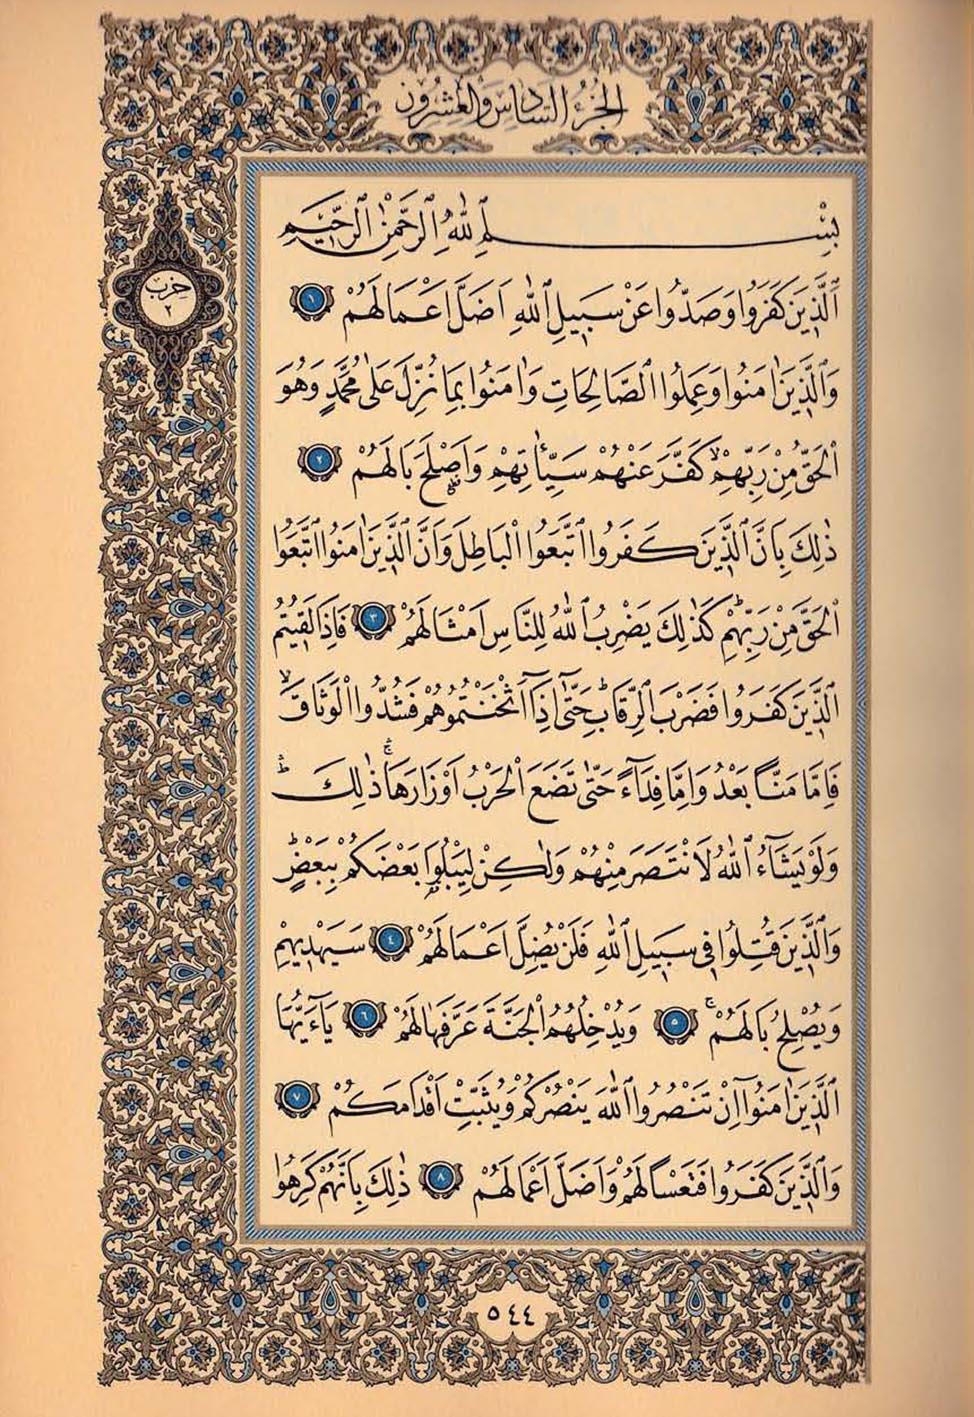 الجزء السادس والعشرون
بِسْمِ اللهِ الرَّحْمٰنِ الرَّحِيمِ
حزب
٢
اَلَّذِينَ كَفَرُوا وَصَدُّوا عَنْ سَبِيلِ اللهِ اَضَلَّ اَعْمَالَهُمْ ١
وَالَّذِينَ اٰمَنُوا وَعَمِلُوا الصَّالِحَاتِ وَاٰمَنُوا بِمَا نُزِّلَ عَلٰى مُحَمَّدٍ وَهُوَ
الْحَقُّ مِنْ رَبِّهِمْۙ كَفَّرَ عَنْهُمْ سَيِّـَٔاتِهِمْ وَاَصْلَحَ بَالَهُمْ ٢
ذٰلِكَ بِاَنَّ الَّذِينَ كَفَرُوا اتَّبَعُوا الْبَاطِلَ وَاَنَّ الَّذِينَ اٰمَنُوا اتَّبَعُوا
الْحَقَّ مِنْ رَبِّهِمْۜ كَذٰلِكَ يَضْرِبُ اللهُ لِلنَّاسِ اَمْثَالَهُمْ ٣ فَاِذَا لَقِيتُمُ
الَّذِينَ كَفَرُوا فَضَرْبَ الرِّقَابِۜ حَتّٰٓى اِذَٓا اَثْخَنْتُمُوهُمْ فَشُدُّوا الْوَثَاقَۙ
فَاِمَّا مَنًّا بَعْدُ وَاِمَّا فِدَٓاءً حَتّٰى تَضَعَ الْحَرْبُ اَوْزَارَهَاۛ ذٰلِكَۜ
وَلَوْ يَشَٓاءُ اللهُ لَانْتَصَرَ مِنْهُمْ وَلٰكِنْ لِيَبْلُوَا بَعْضَكُمْ بِبَعْضٍۜ
وَالَّذِينَ قُتِلُوا فِي سَبِيلِ اللهِ فَلَنْ يُضِلَّ اَعْمَالَهُمْ ٤ سَيَهْدِيهِمْ
وَيُصْلِحُ بَالَهُمْۚ ٥ وَيُدْخِلُهُمُ الْجَنَّةَ عَرَّفَهَا لَهُمْ ٦ يَٓا اَيُّهَا
الَّذِينَ اٰمَنُٓوا اِنْ تَنْصُرُوا اللهَ يَنْصُرْكُمْ وَيُثَبِّتْ اَقْدَامَكُمْ ٧
وَالَّذِينَ كَفَرُوا فَتَعْسًا لَهُمْ وَاَضَلَّ اَعْمَالَهُمْ ٨ ذٰلِكَ بِاَنَّهُمْ كَرِهُوا
٥٤٤